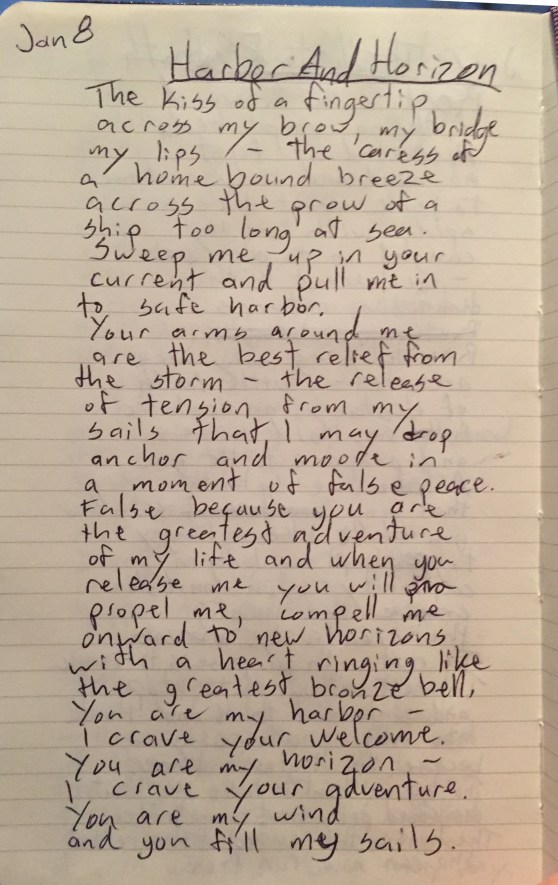 Jan 8
Harbor And Horizon
The kiss of a fingertip
across my brow, my bridge
my lips - the caress of
a home bound breeze
across the prow of a
ship too long at sea.
Sweep me up in your
current and pull me in
to safe harbor.
Your arms around me
are the best relief from
the storm - the release
of tension from my
sails that I may drop
anchor and moore in
a moment of false peace.
False because you are
the greatest adventure
of my life and when you
release me you will pro
propel me, compell me
onward to new horizons
with a heart ringing like
the greatest bronze bell,
You are my harbor -
I crave your welcome.
You are my horizon ~
I crave your adventure.
You are my wind
and you fill my sails.